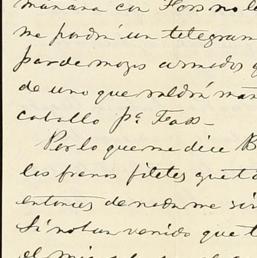 mañana con Flors no l
me pondrá un telegram
par de mozos armados q
de uno que saldrá mañ
caballo pª Teas—
Por lo que me dice B
los frenos filetes que t
entonces de nada me sir
Si no han venido que t
el mi